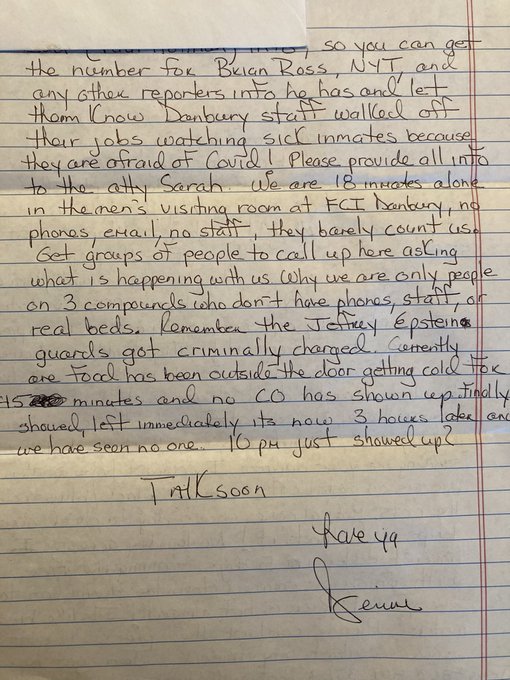 so you can get
the number for Brian Ross, NYT, and
any other reporters info he has and let
them know Danbury staff walked off
their jobs watching sick inmates because
they are afraid of Covid! Please provide all info
to the atty Sarah. We are 18 inmates alone
in the men's visiting room at FCI Danbury, no
phones, email, no staff, they barely count us.
Get groups of people to call up here asking
what is happening with us why we are only people
on 3 compounds who don't have phones, staff, or
real beds. Remember the Jeffrey Epstein
guards got criminally charged. Currently
are Food has been outside the door getting cold for
45 minutes and no CO has shown up. Finally
showed, left immediately its now 3 hours later and
we have seen no one.. 10 pm just showed up?
Talk soon
Love ya